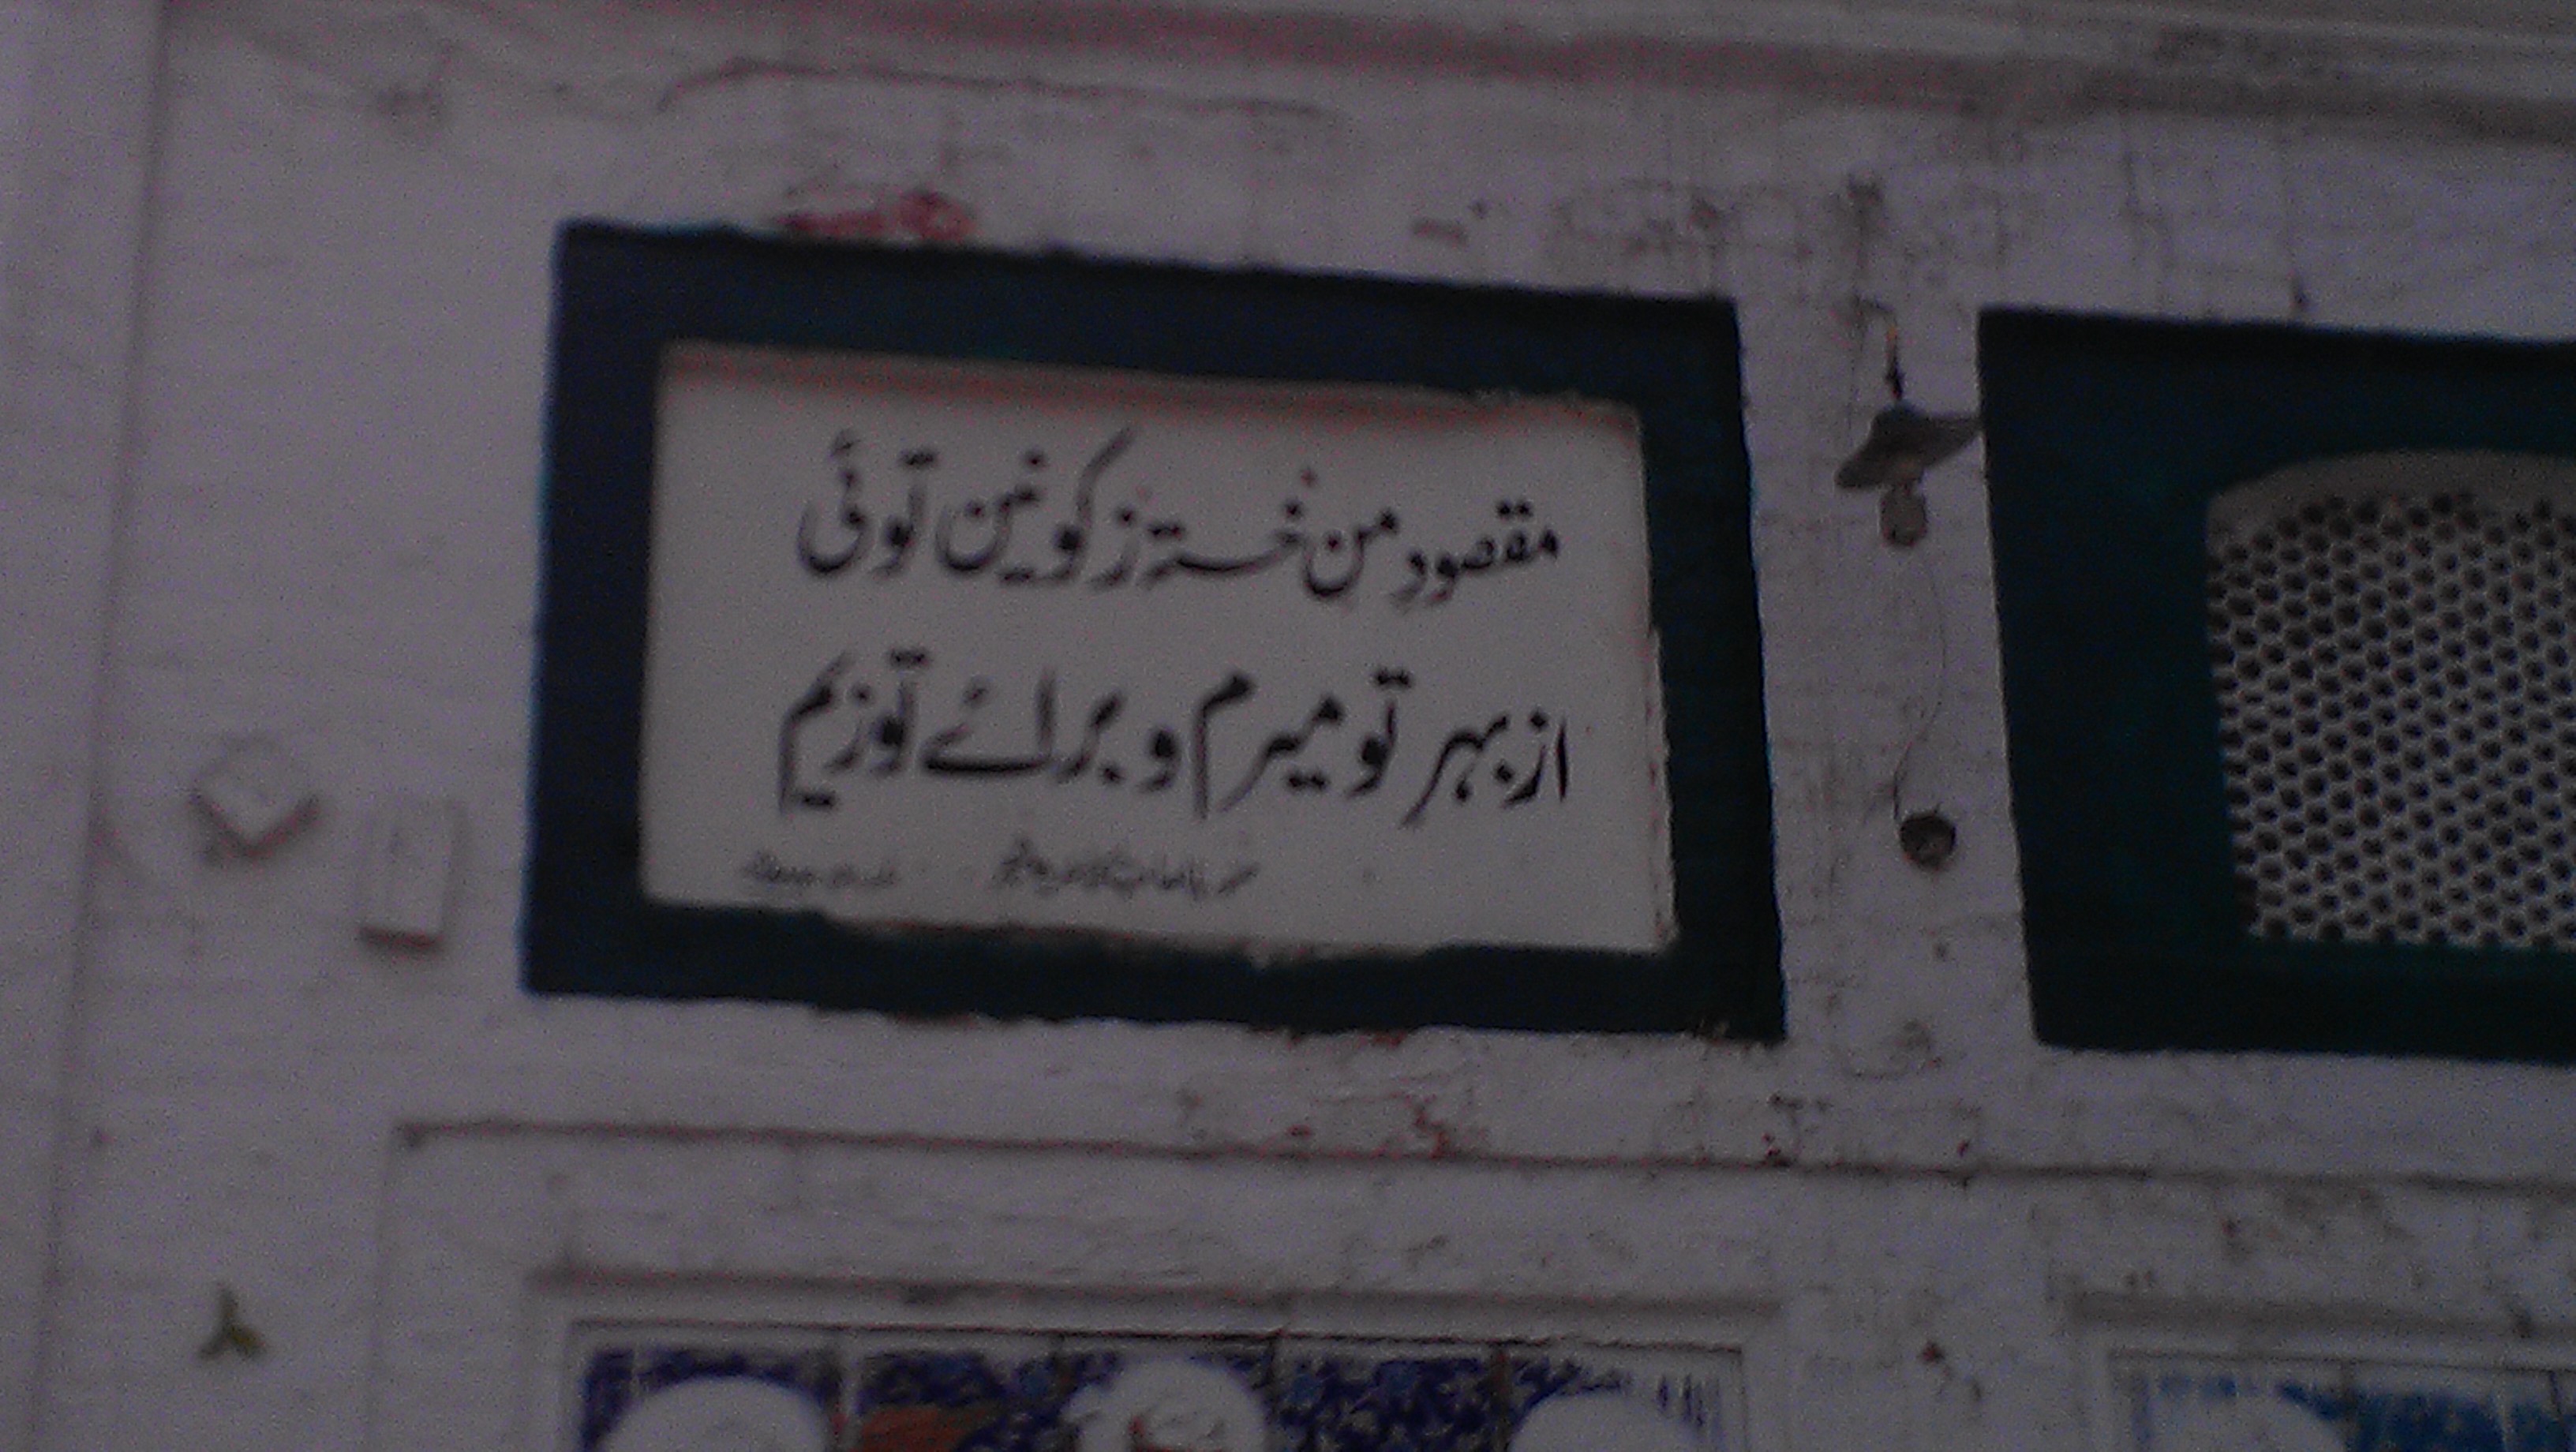 مقصودِ من خستہ ز کونین توئی
از بہر تو میرم و برائے تو زیم